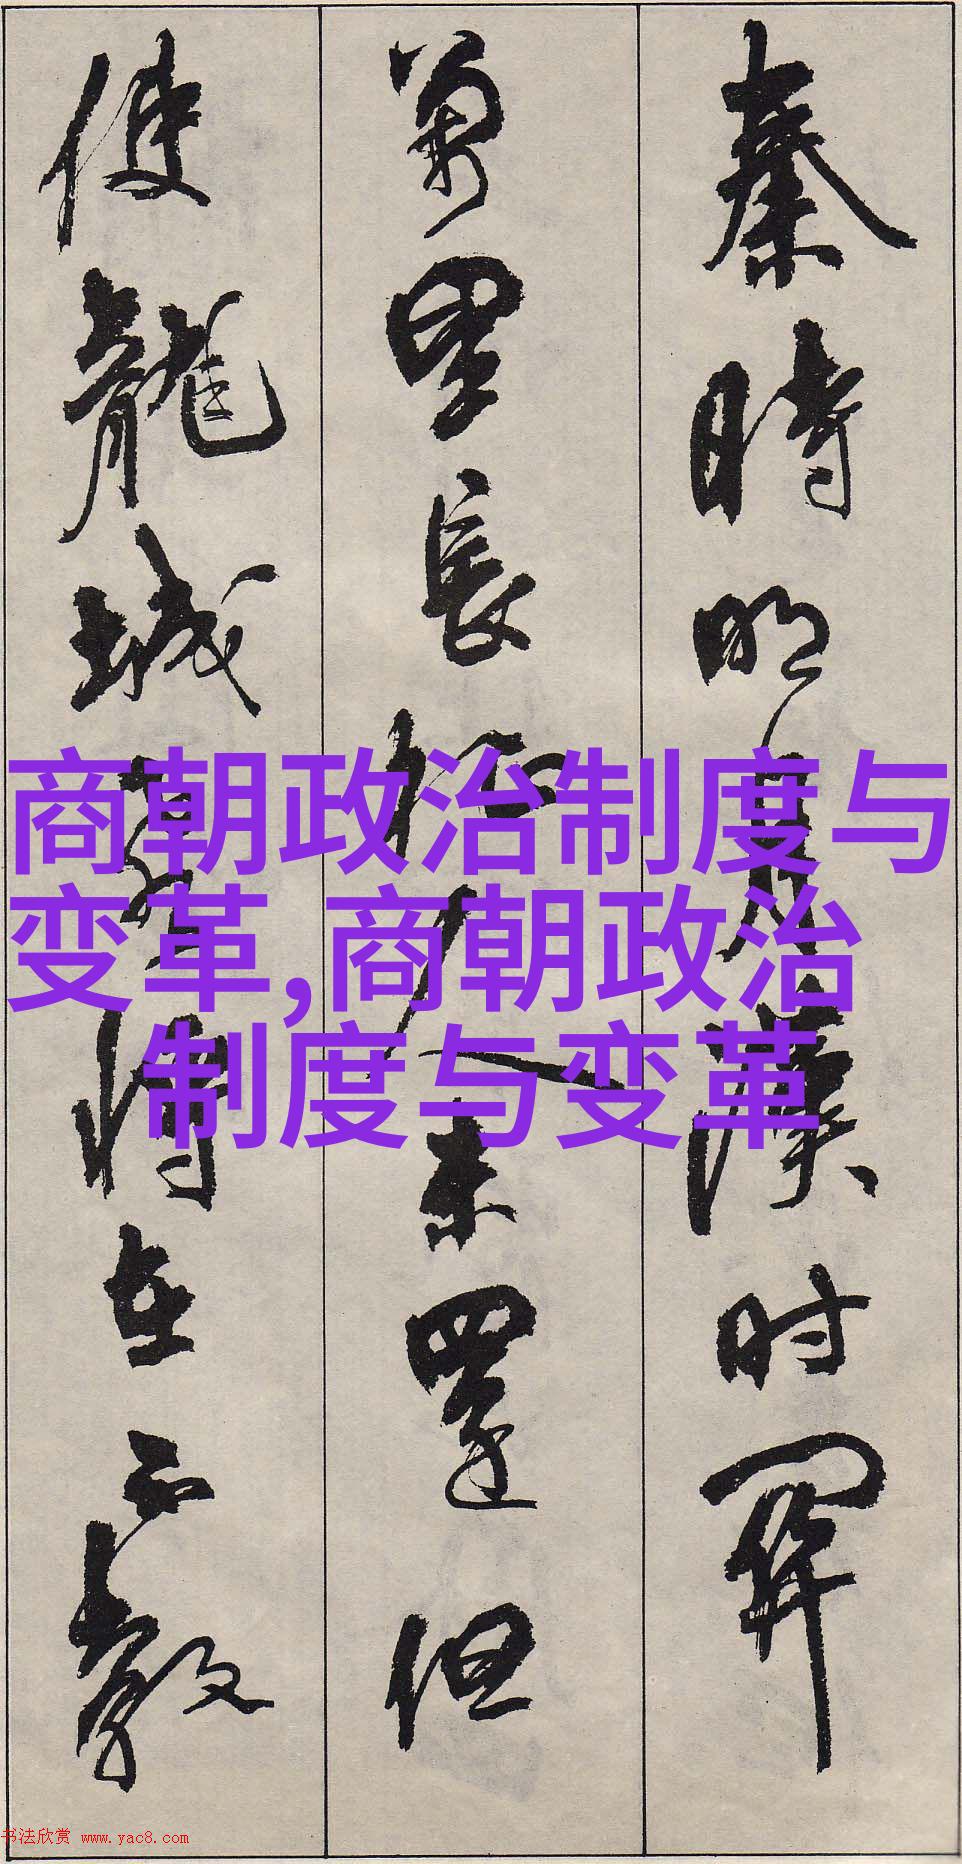 秦時明月漢时關
萬里長征人未還但
使龍城飛将在不教
商朝政治制度与
变革,商朝政治
制度与变革
书法欣赏 www.yac8.com